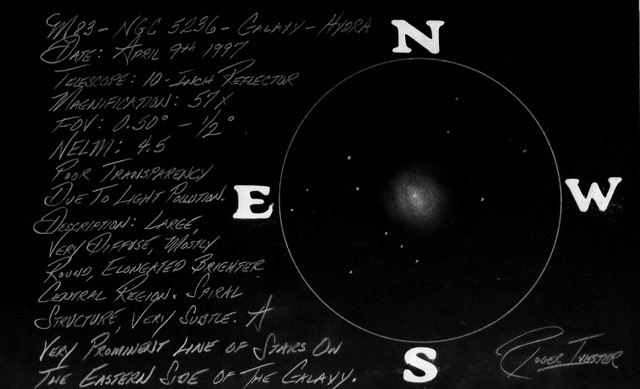 M83 - NGC 5236 - Galaxy - Hydra
Date: April 9th 1997
Telescope: 10-Inch Reflector
Magnification: 57x
FOV: 0.50° - 1/2°
NELM: 4.5
Poor Transparency
Due To Light Pollution.
Description: Large,
Very Diffuse, Mostly
Round, Elongated Brighter
Central Region. Spiral
Structure, Very Subtle. A
Very Prominent Line of Stars On
The Eastern Side of The Galaxy.
N
E
W
S
Roger Ivester